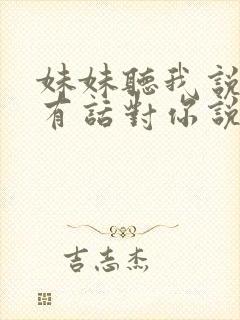 妹妹聽我說
有話對你說
吉志杰